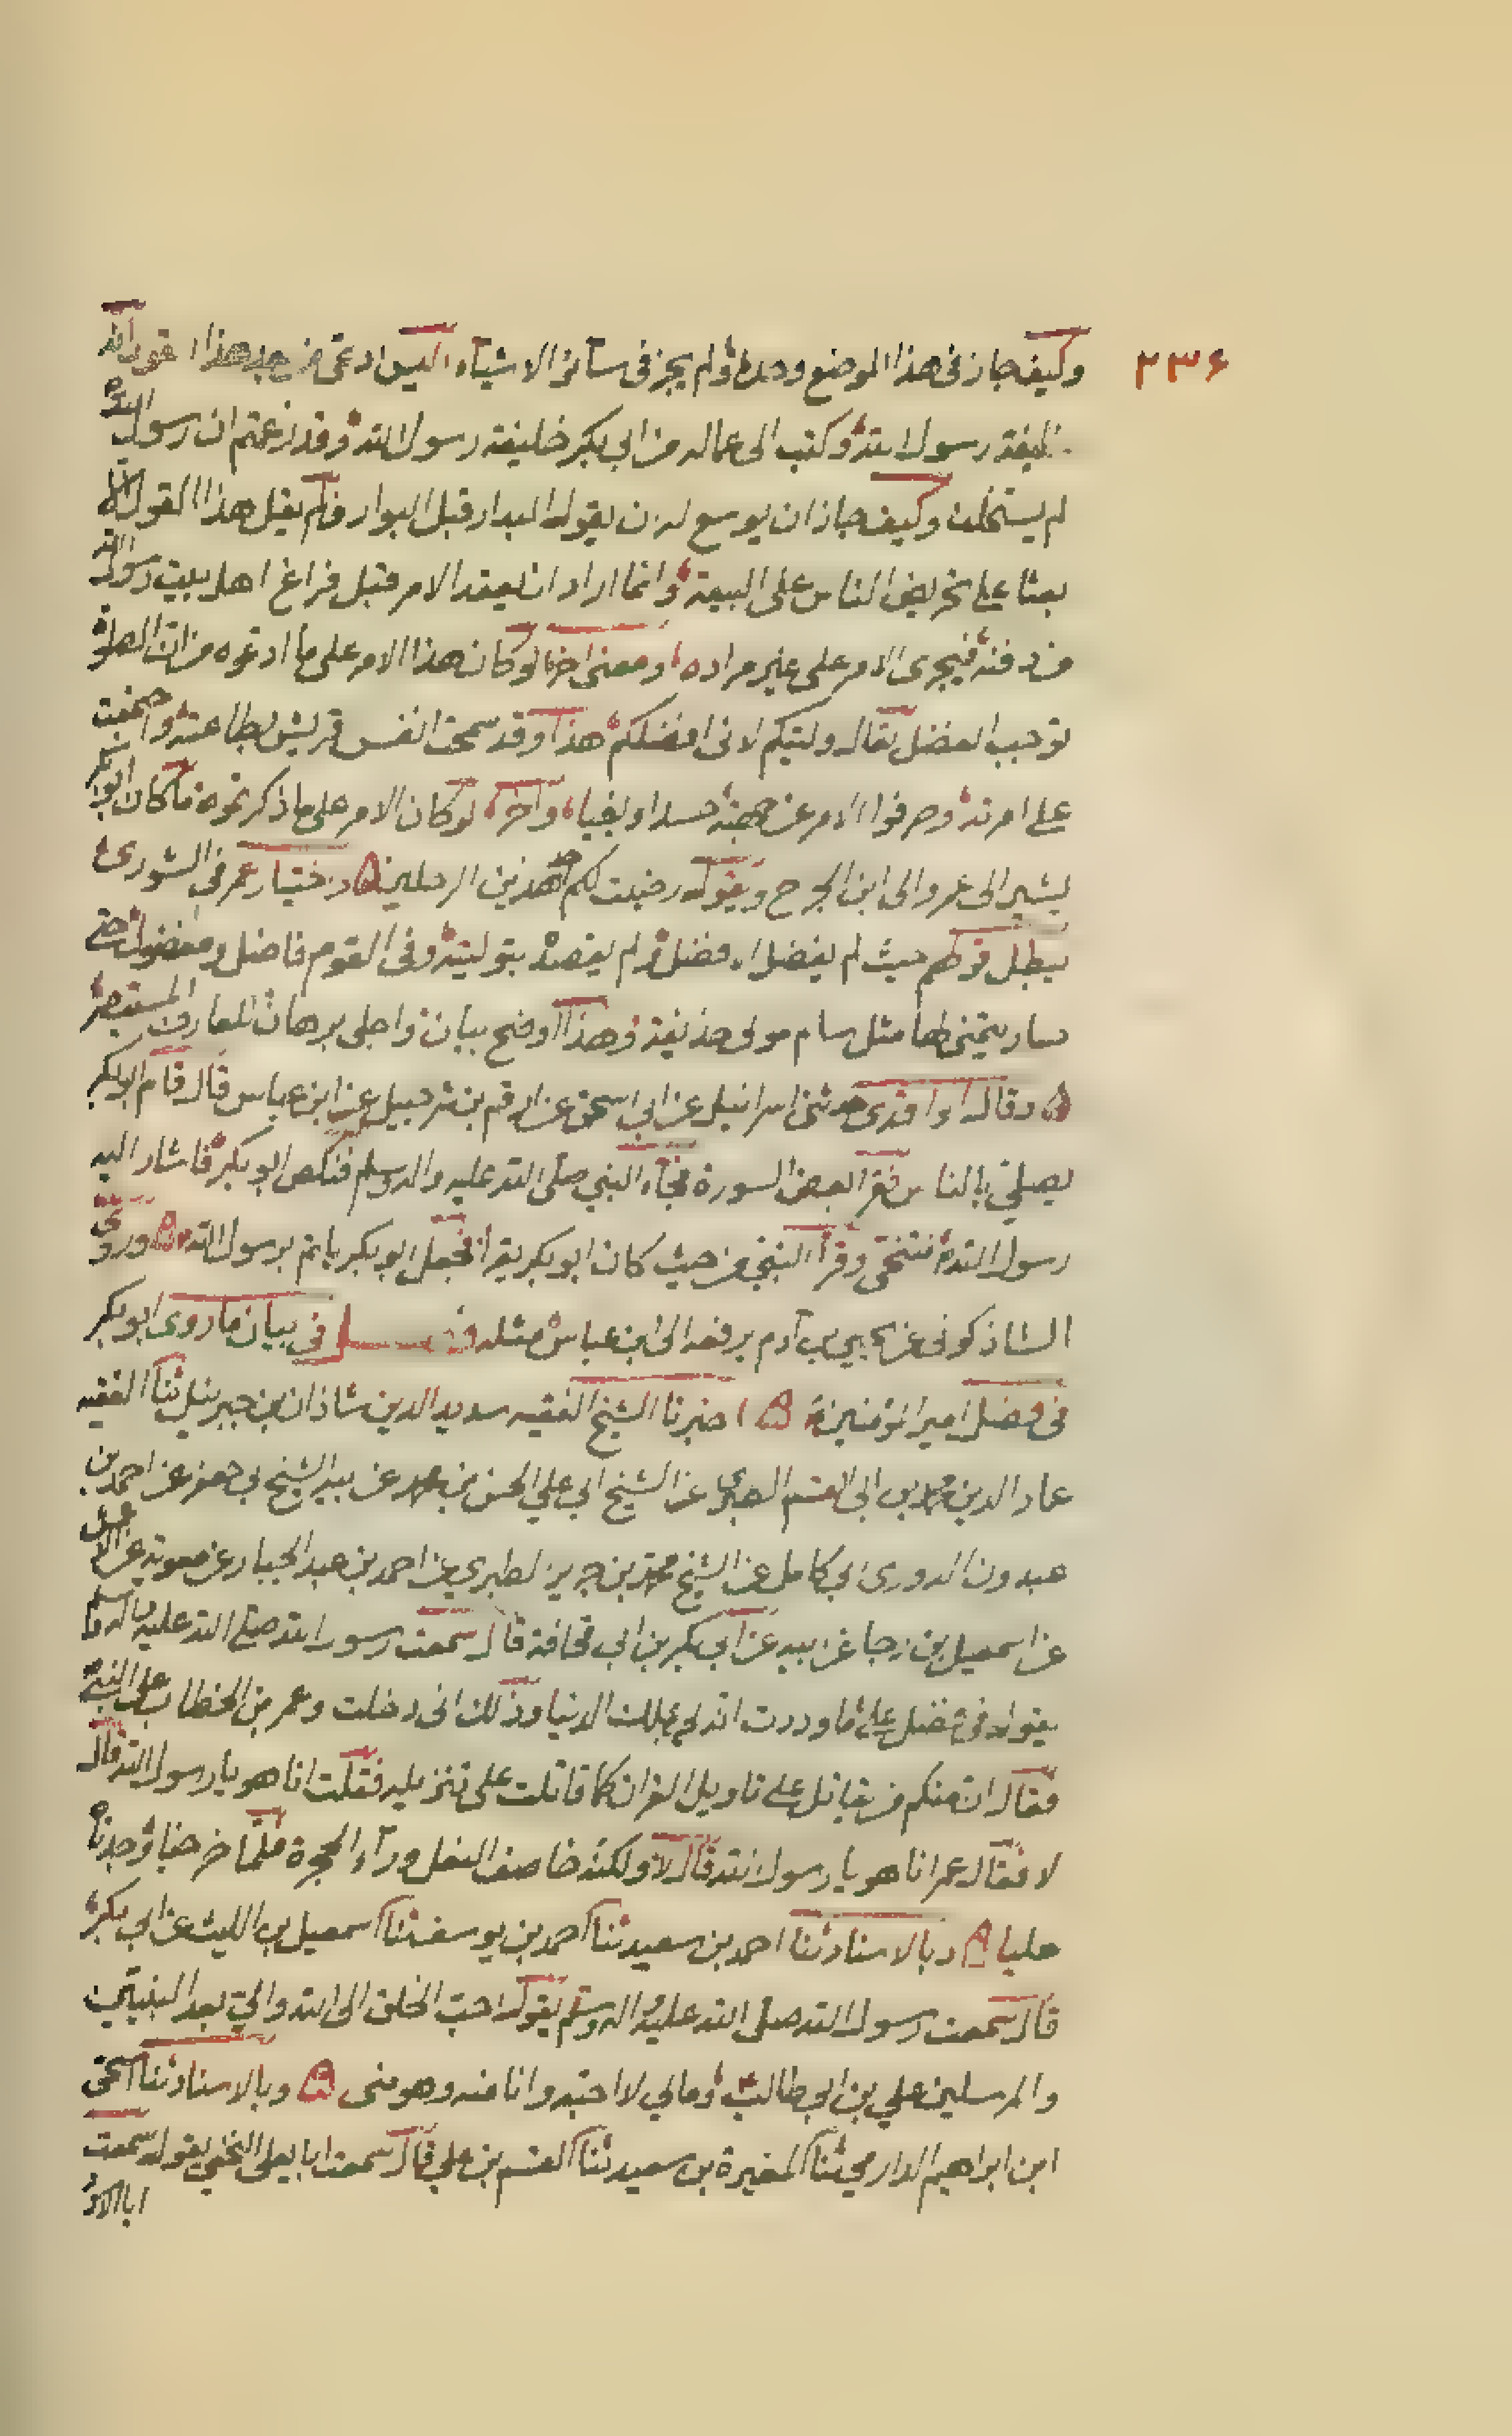 ٢٣٦
وكيف جاز فى هذا الموضع وحده ولم يجز فى سآئر الاشيآء اليس ادعى من بعد هذا القول انه
خليفة رسول الله وكتب الى عماله من ابى بكر خليفة رسول الله وقد زعمتم ان رسول الله
لم يستخلف وكيف جاز ان يوسع له ان يقول البدار قبل البوار فلم يقل هذا القول الا
بعثا على تحريض الناس على البيعة وانما اراد ان يعقد الامر قبل فراغ اهل بيت رسول الله
من دفنه فيجرى الامر على غير مراده ومعنى اخر لو كان هذا الامر على ما ادعوه من ان الصلوة
توجب الفضل لقال وليتكم لانى افضلكم هذا وقد سمحت انفس قريش بطاعته واجتمعت
على امرته وصرفوا الامر عن جهته حسدا وبغيا واخر لو كان الامر على ما ذكرتموه ما كان ابو بكر
يشير الى عمر والى ابن الجرح ويقول رضيت لكم احد هذين الرجلين واختيار عمر فى الشورى
يبطل قولكم حيث لم يفضل فضل ولم يقصد بتوليته وفى القوم فاضل ومفضول حتى
صار يتمنى لها مثل سالم مولى حذيفة وهذا اوضح بيان واجلى برهان للعارف المستبصر
وقال الواقدى حدثنى اسرائيل عن ابى اسحق عن ارقم بن شرحبيل عن ابن عباس قال قام ابو بكر
يصلى بالناس فقرا بعض السورة فجآء النبى صلى الله عليه واله وسلم فنكص ابو بكر فاشار اليه
رسول الله فتنحى وقرأ النبى من حيث كان ابو بكر يقرأ فجعل ابو بكر ياتم برسول الله وروى
الشاذكونى عن يحيى بن آدم يرفعه الى ابن عباس مثله فصل فى بيان ما روى ابو بكر
فى فضل امير المؤمنين اخبرنا الشيخ الفقيه سديد الدين شاذان بن جبرئيل ثنا الفقيه
عماد الدين محمد بن ابى القسم الطبرى عن الشيخ ابي علي الحسن بن محمد عن ابيه الشيخ ابى جعفر عن احمد بن
عبدون الدورى ابي كامل عن الشيخ محمد بن جرير الطبري عن احمد بن عبد الجبار عن معوية عن الاعمش
عن اسمعيل بن رجا عن ابيه عن ابي بكر بن ابي قحافة قال سمعت رسول الله صلى الله عليه واله وسلم
يقول فى فضل على ما وددت انه لى بملك الدنيا وذلك انى دخلت وعمر بن الخطاب على النبى
فقال ان منكم من يقاتل على تاويل القران كما قاتلت على تنزيله فقلت انا هو يا رسول الله قال
لا فقال عمر انا هو يا رسول الله قال لا ولكنه خاصف النعل ورآء الحجرة فلما خرجنا وجدنا
عليا وبالاسناد ثنا احمد بن سعيد ثنا احمد بن يوسف ثنا اسمعيل بن الليث عن ابي بكر
قال سمعت رسول الله صلى الله عليه واله وسلم يقول احب الخلق الى الله والي بعد النبيين
والمرسلين علي بن ابي طالب وما لي لا احبه وانا منه وهو منى وبالاسناد ثنا اسحق
ابن ابراهيم الدارمي ثنا المغيرة بن سعيد ثنا القسم بن علي قال سمعت ابا يعلى النخعي يقول سمعت